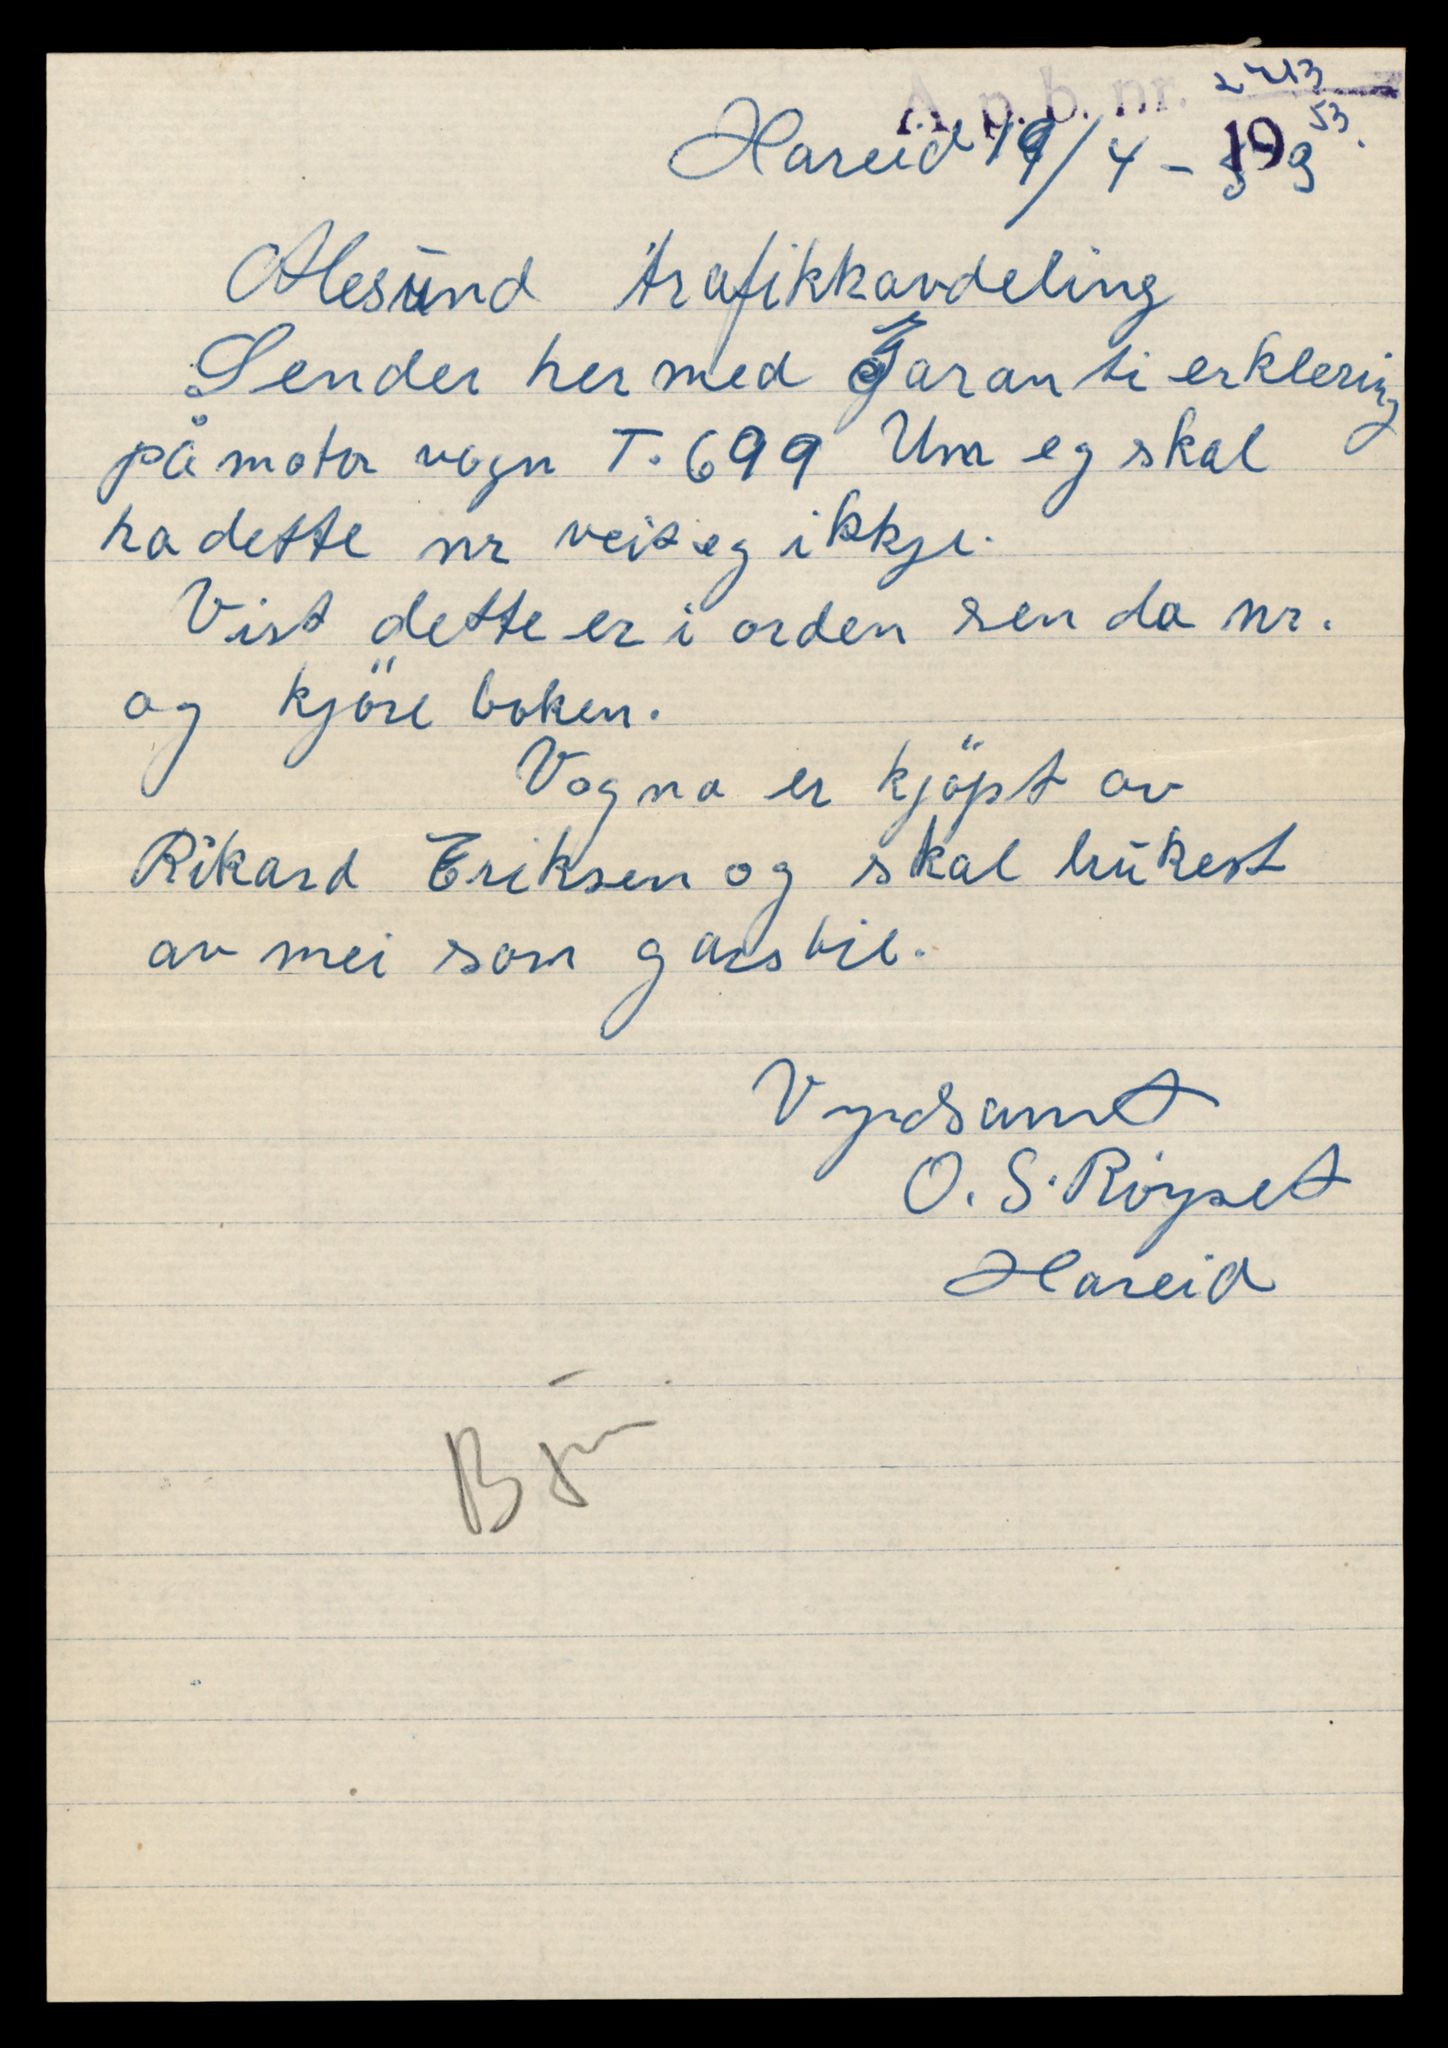 Å. p. b. nr. 2713
1953.
Hareid 19/4 - 53
Alesund trafikkavdeling
Sender her med Garanti erklering
på motor vogn T. 699 Um eg skal
ha dette nr veit eg ikkje.
Vist dette er i orden sen da nr.
og kjöre boken.
Vogna er kjöpt av
Rikard Eriksen og skal brukest
av mei som garsbil.
Vyrdsamt
O. S. Röyset
Hareid